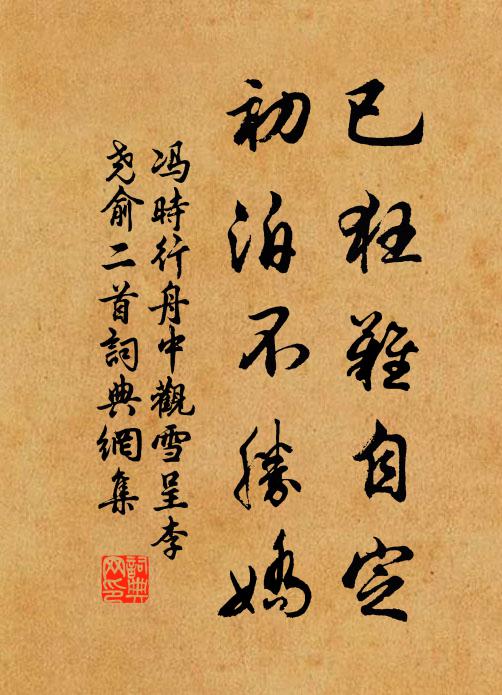 已狂難自定
初泊不勝嬌
冯時行舟中觀雪呈李
尧俞二首詞典網集
詞典
网印